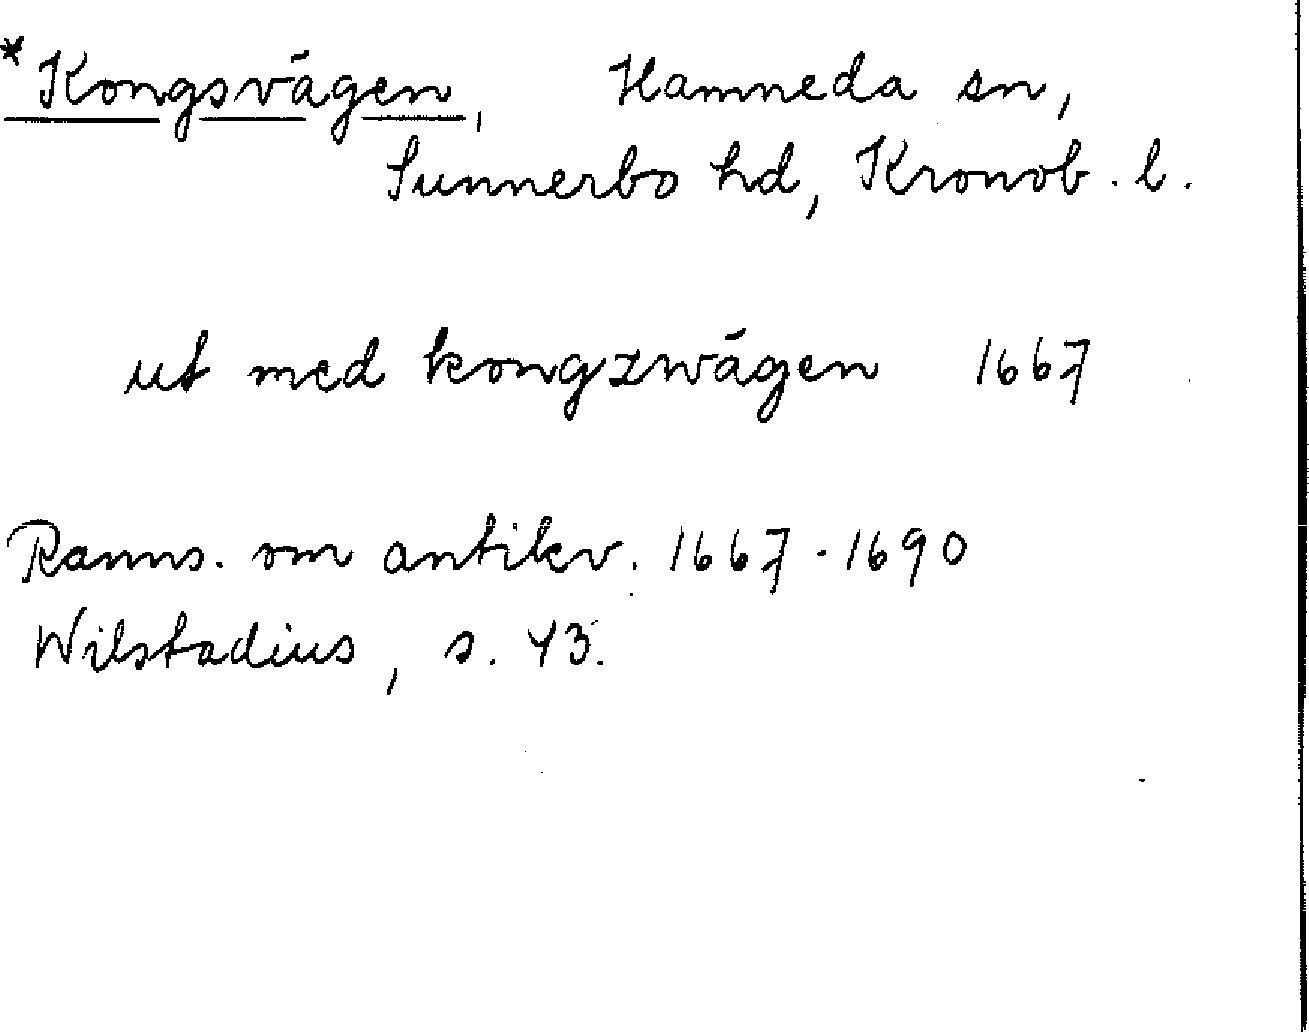 *Kongsvägen, Hamneda sn,
Sunnerbo hd, Kronob. l.
ut med kongzwägen 1667
Ranns. om antikv. 1667-1690
Wilstadius, s. 43.